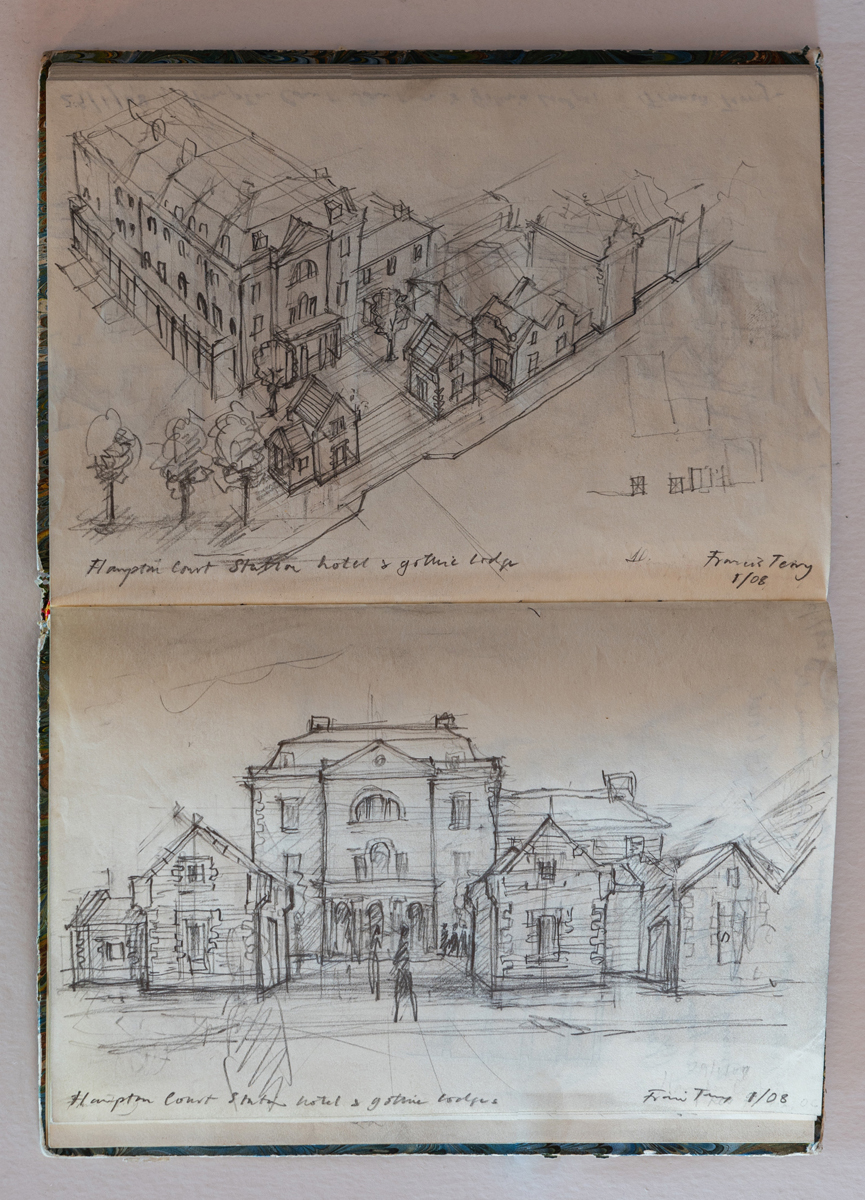 Hampton Court Station hotel & gothic lodge
Francis Terry
1/08
Hampton Court Station hotel & gothic lodges
Francis Terry 1/08